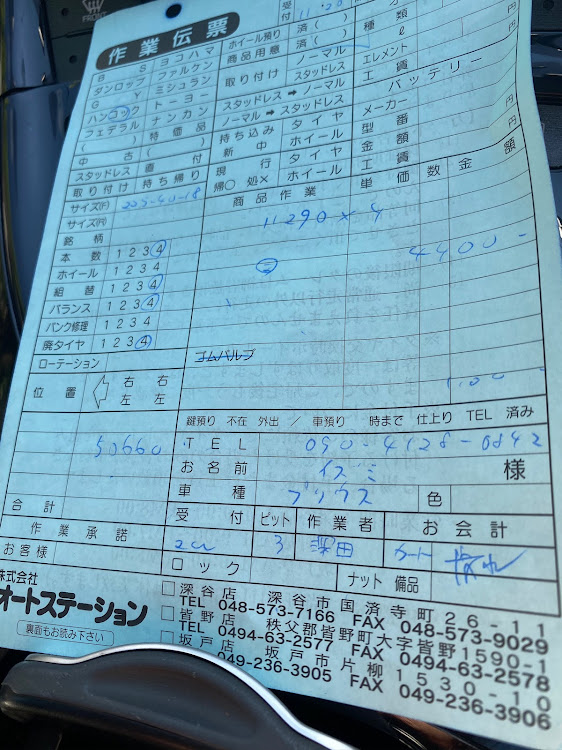 FRONT
作業伝票
受付 11:20
B S ヨコハマ ホイール預り 済( )
ダンロップ ファルケン 商品用意 済( ) 種類
G Y ミシュラン 取り付け ノーマル ℓ
ハンコック トーヨー スタッドレス エレメント
フェデラル ナンカン スタッドレス➡ノーマル 工賃
( ) 特価品 ノーマル➡スタッドレス バッテリー
中古( ) 持ち込み タイヤ メーカー 円
スタッドレス 直付 新中 ホイール 型番
取り付け 持ち帰り 現行 タイヤ 金額 円
帰○ 処× ホイール 工賃 円
サイズ(F) 225-40-18 商品作業 単価 数 金額
サイズ(R) 11290×4
銘柄
本数 1 2 3 4 4400-
ホイール 1 2 3 4
組替 1 2 3 4
バランス 1 2 3 4
パンク修理 1 2 3 4
廃タイヤ 1 2 3 4 ゴムバルブ
ローテーション
位置 右 右
左 左 鍵預り 不在 外出 / 車預り 時まで 仕上り TEL 済み
50660 TEL 090-4128-0842
お名前 イズミ 様
車種 プリウス 色
合計 受付 ピット 作業者 お会計
作業承諾 3 深田 カード
お客様 ロック ナット 備品
株式会社
オートステーション
裏面もお読み下さい
□深谷店 深谷市国済寺町26-11
TEL 048-573-7166 FAX 048-573-9029
□皆野店 秩父郡皆野町大字皆野1590-1
TEL 0494-63-2577 FAX 0494-63-2578
□坂戸店 坂戸市片柳1530-10
049-236-3905 FAX 049-236-3906